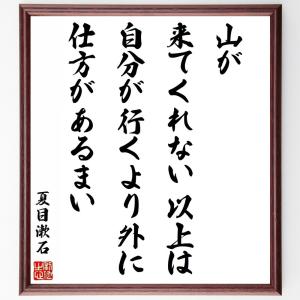 山が
来てくれない以上は
自分が行くより外に
仕方があるまい
夏目漱石